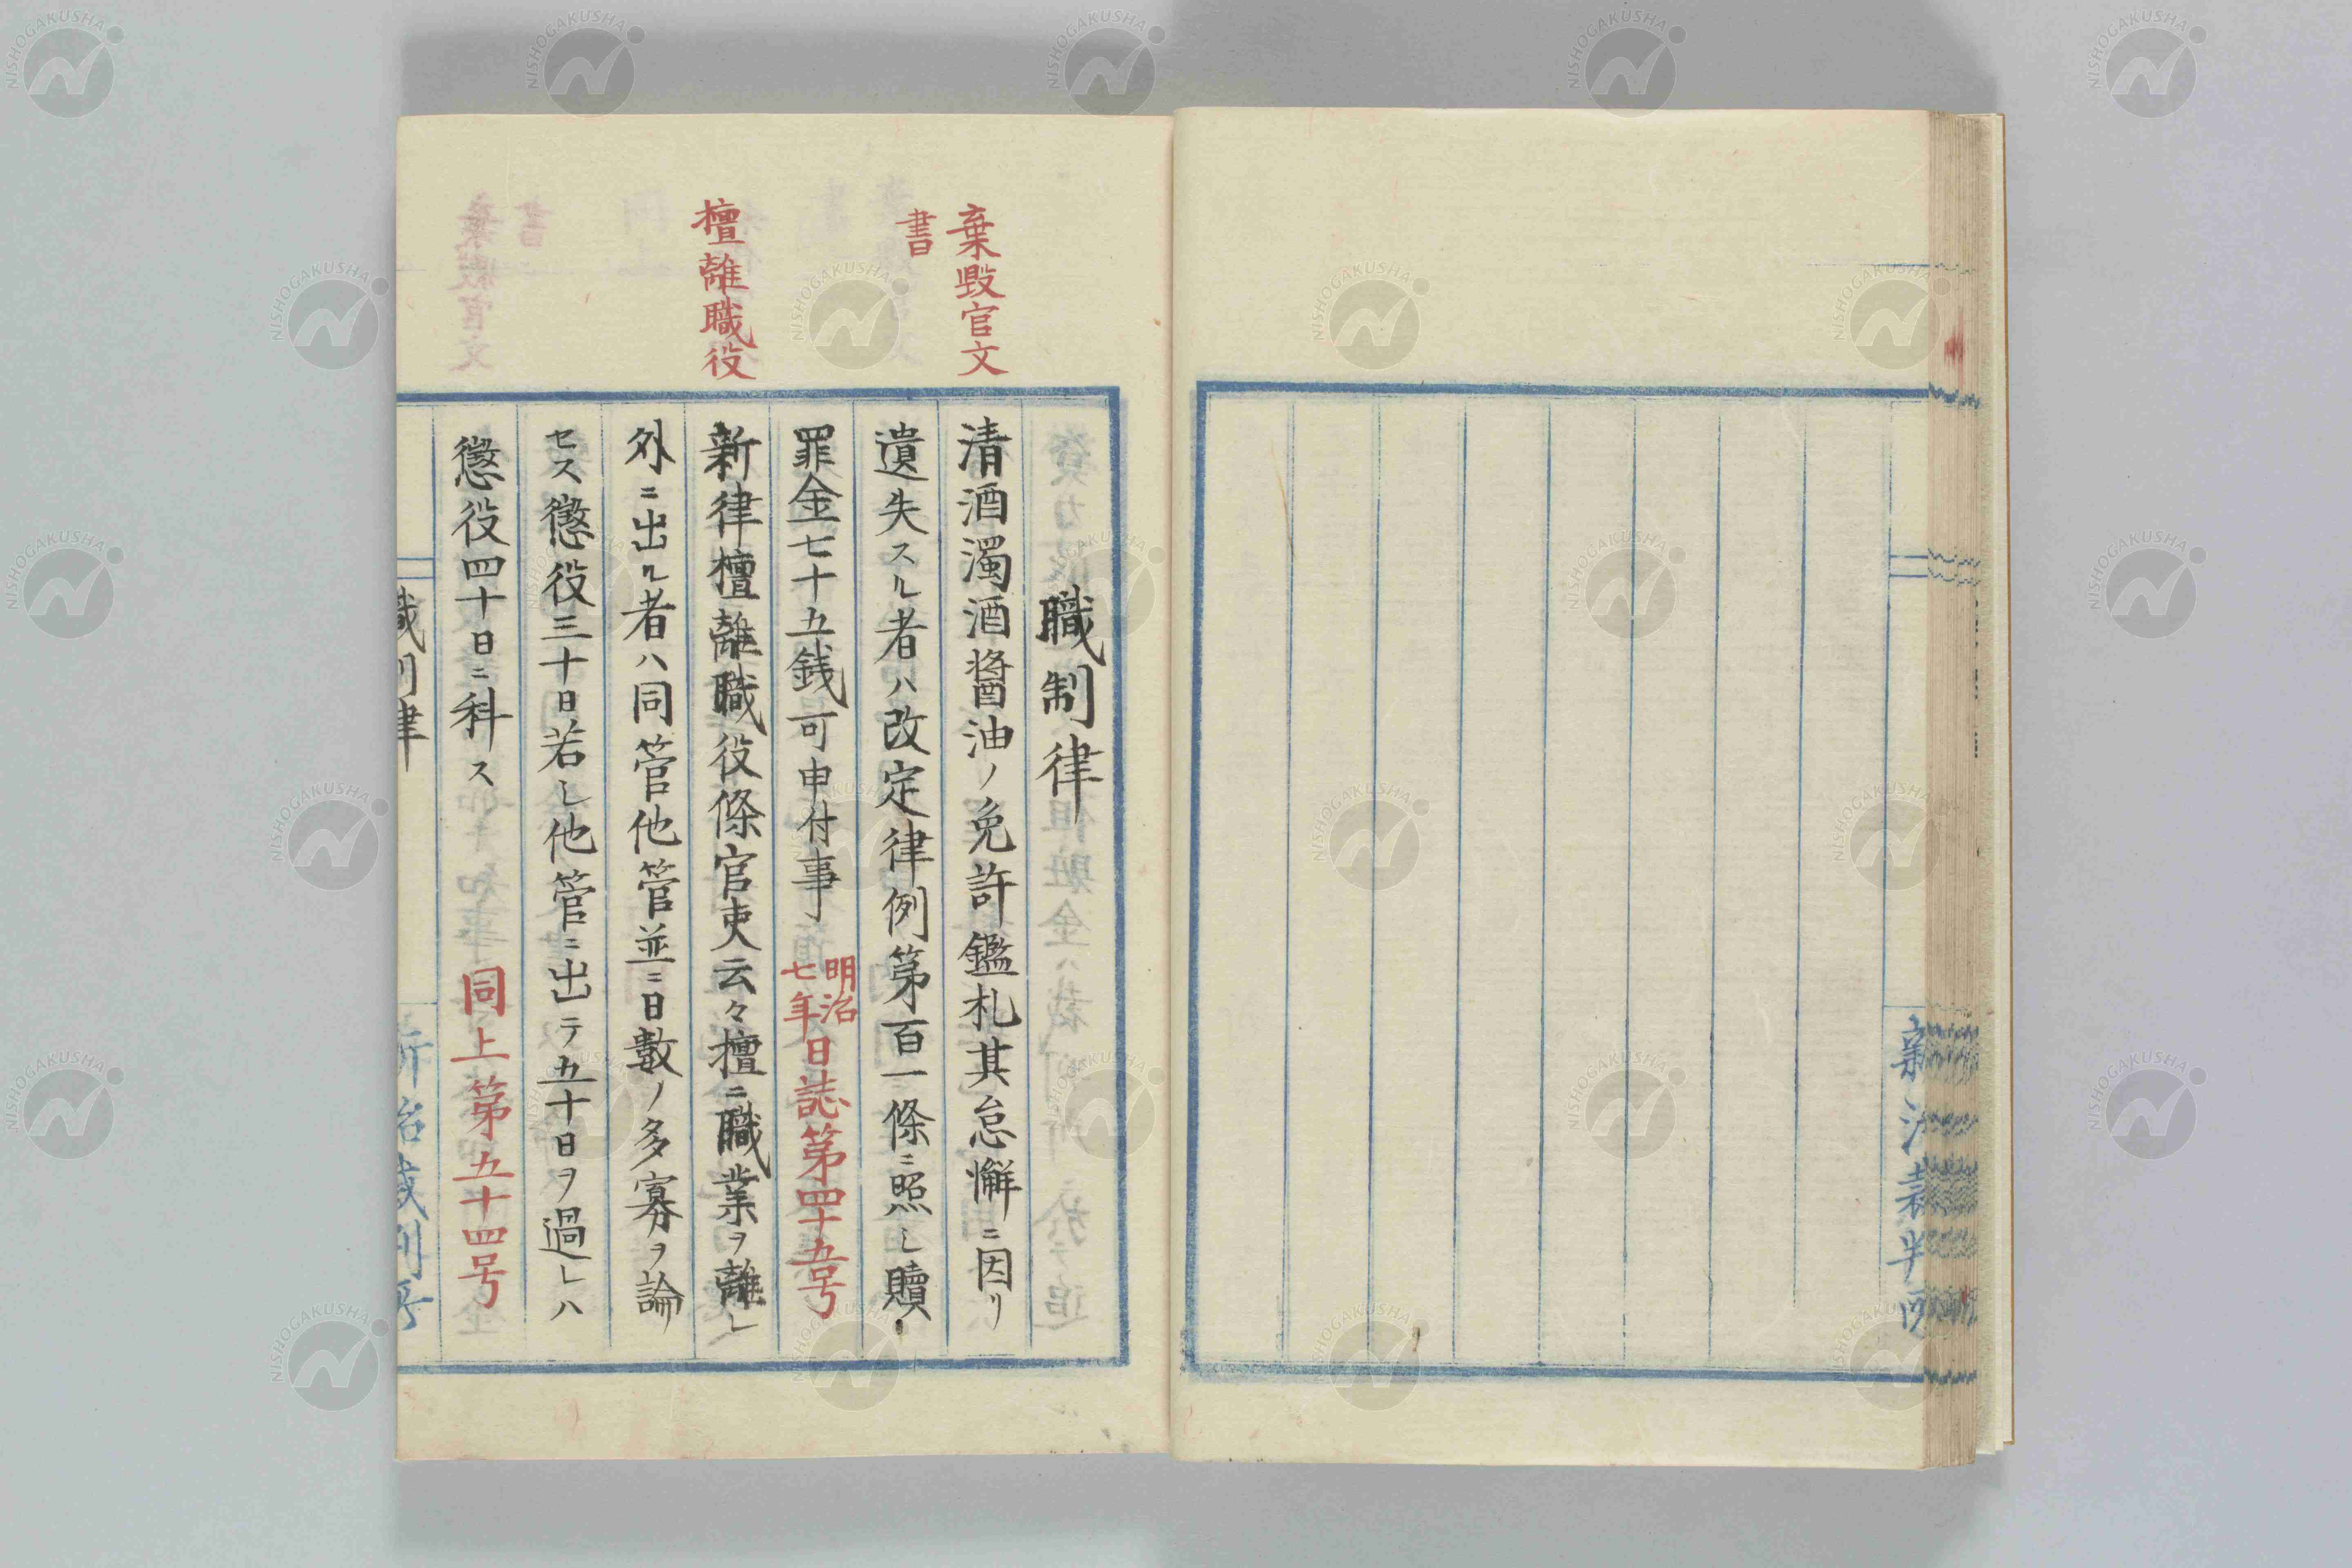 職制律
棄毀官文
書
清酒濁酒醬油ノ免許鑑札其怠懈ニ因リ
遺失スル者ハ改定律例第百一條ニ照シ贖
罪金七十五銭可申付事 明治七年日誌第四十五号
擅離職役
新律擅離職役條官吏云々擅ニ職業ヲ離レ
外ニ出ル者ハ同管他管並ニ日數ノ多寡ヲ論
セス懲役三十日若シ他管ニ出テ五十日ヲ過レハ
懲役四十日ニ科ス 同上第五十四号
職制律
NISHOGAKUSHA